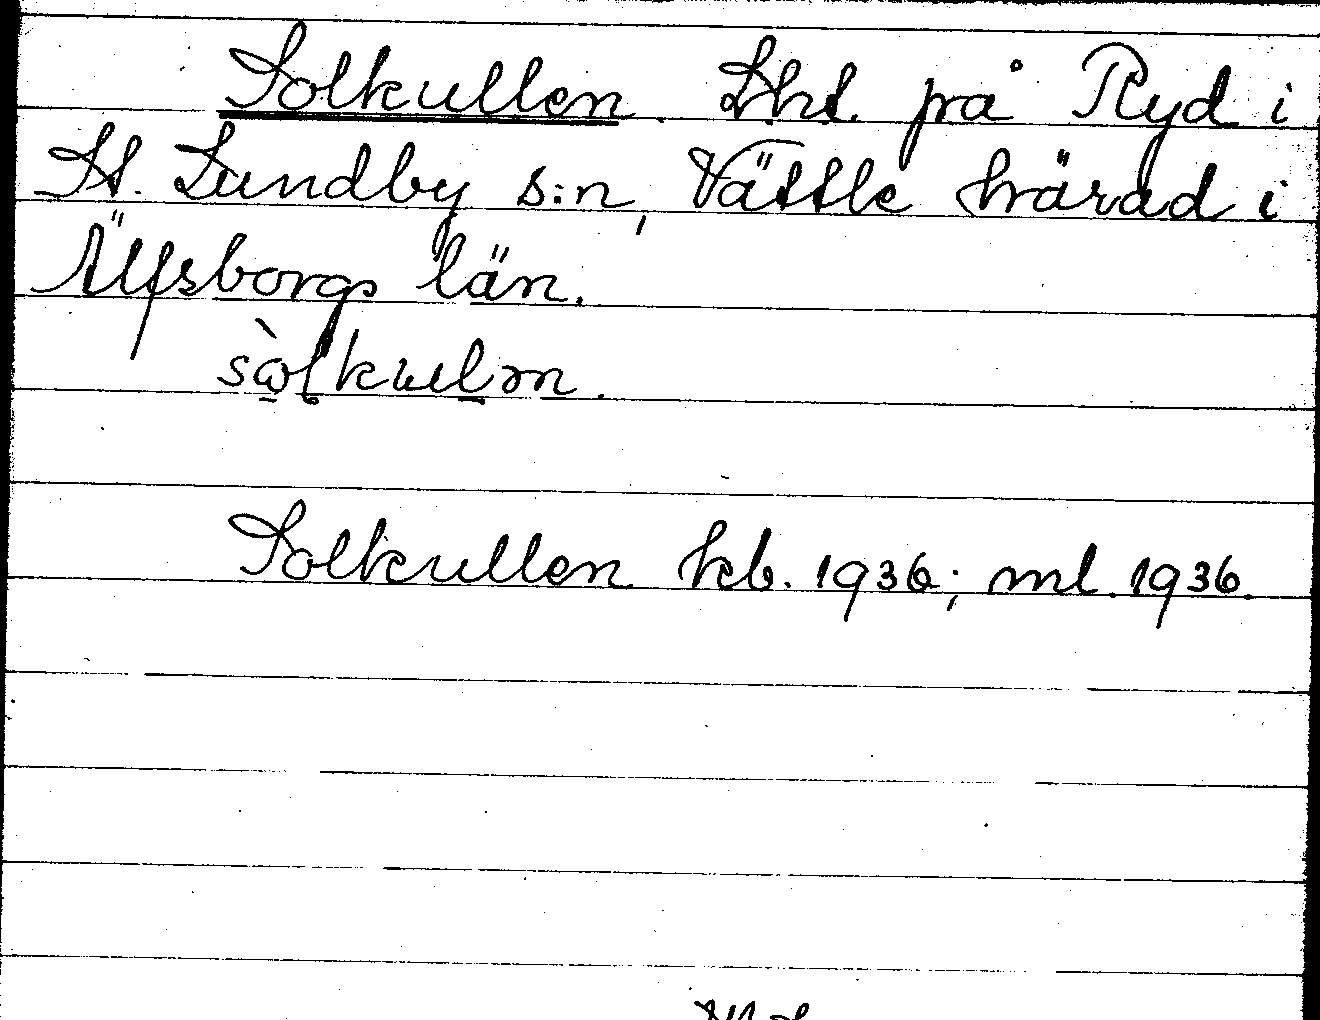 Solkullen. Lht. på Ryd i
St. Lundby s:n, Vättle härad i
Älfsborgs län.
Solkullen kb. 1936; ml. 1936.